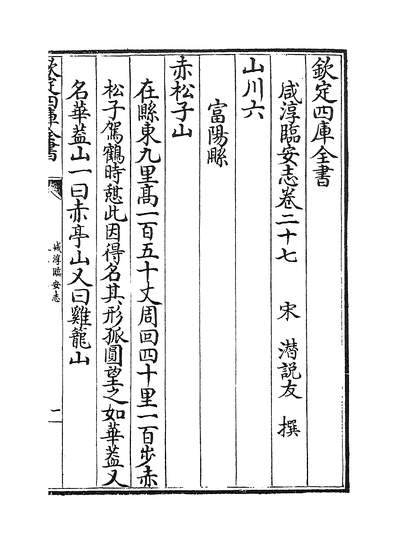 欽定四庫全書
咸淳臨安志卷二十七　宋　潜說友　撰
山川六
富陽縣
赤松子山
在縣東九里髙一百五十丈周回四十里一百步赤
松子駕鶴時憇此因得名其形孤圓望之如華蓋又
名華蓋山一曰赤亭山又曰雞籠山
欽定四庫全書
咸淳臨安志
一